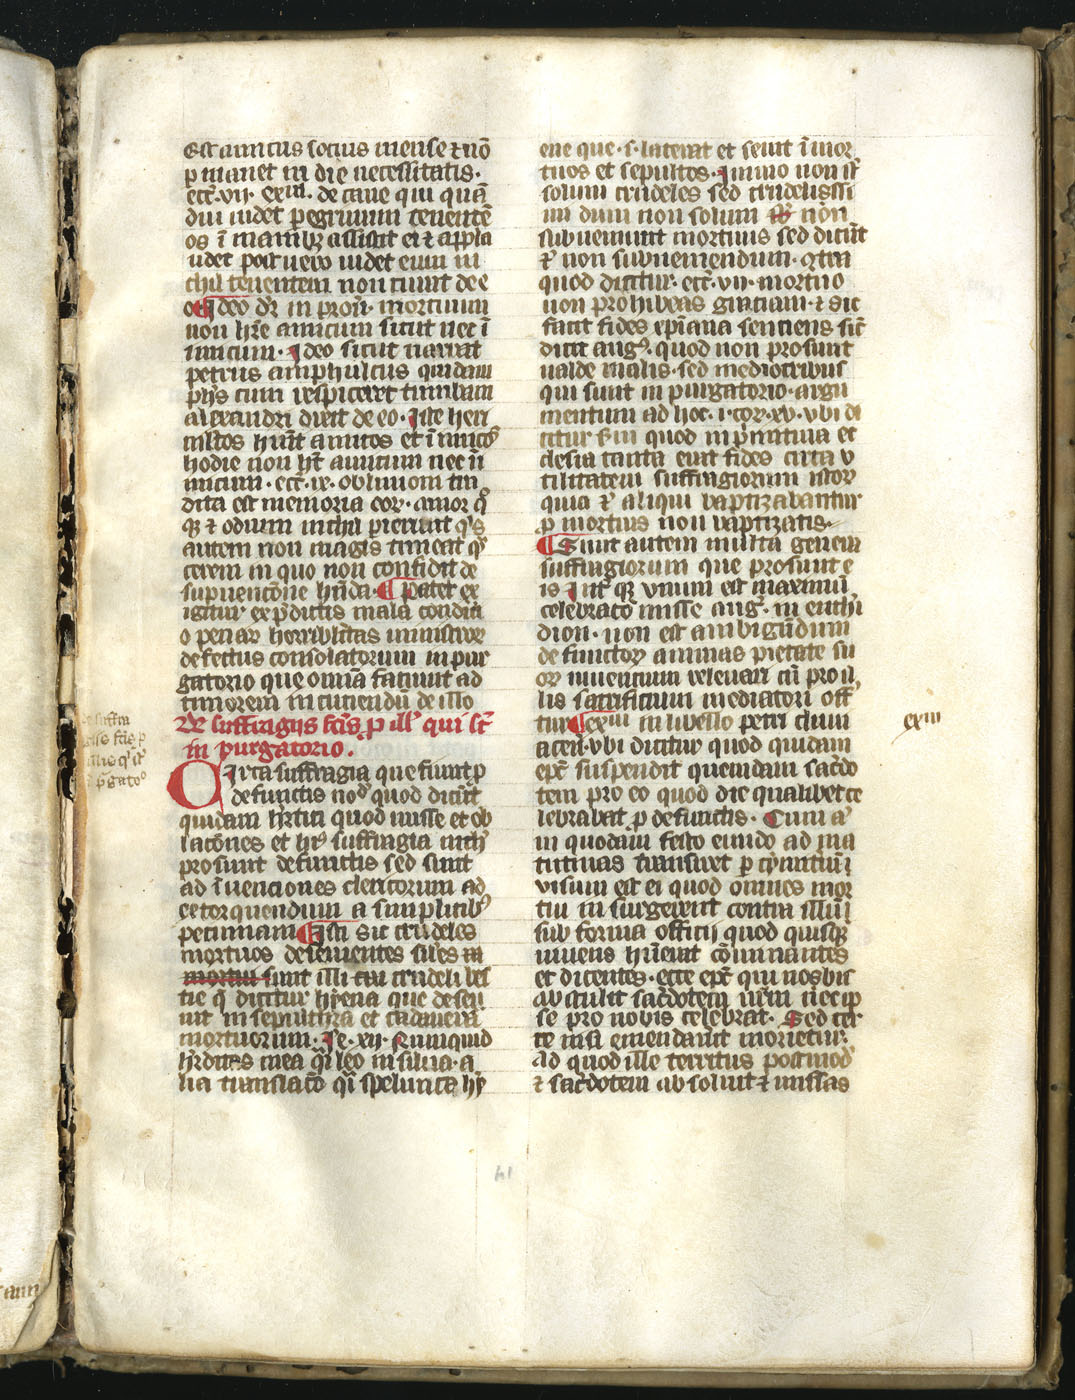 Est amicus socius mense ⁊ nō
p̱manet in die necessitatis.
ecc̄. vij. exm̄. de cane qui quā
diu uidet p̱egrinum tenentē
os ī manibꝫ assistit ei ⁊ appla
udit post uero uidet eum ni
chil tenentem non curat de e
o ¶ Ideo dr̄ in prou̓. mortuum
non hr̄e amicum sicut nec ī
imicum. Ideo sicut narrat
petrus amphulcus quidam
ph̄s cum respiceret tumbam
alexandri dixit de eo. Iste heri
multos hūit amicos et īimicos
hodie non hꝫ amicum nec in
imicum. ecc̄. ix. obliuioni tra
dita est memoria eoꝝ. amor qͦ
qꝫ ⁊ odium nichil perierunt qͥs
autem non magis timeat
cerem in quo non confidit de
supuencōne hn̄da. ¶ Patet ex
igitur ex p̄dictis mala condici
o penaꝝ horribilitas ministroꝝ
defectus consolatorum in pur
gatorio que omnia faciunt ad
timorem incuciendū de illo
De suffragijs fcīs p̱ ill̓ qui st̄
in purgatorio.
Circa suffragia que fiunt p̱
defunctis noͣ quod dicūt
quidam hr̄tici quod misse et ob
lacōnes et hꝰ suffragia nichil
prosunt defunctis sed sunt
ad īuenciones clericorum ad
extorquendum a simplicibꝰ
pecuniam ¶ Isti sic crudeles
mortuos deseruientes siles
mortui sunt illi crudeli bes
tie q̄ dicitur hyena que deseu
uit in sepultura et cadauera
mortuorum. Ie. xij. Nunquid
hr̄ditas mea qͣi leo in silua. a
lia translacō qͣi spelunca hy
ene que .s. lacerat et seuit ī mor
tuos et sepultos. Immo non st̄
solum crudeles sed crudelissi
mi dum non solum non
subueniunt mortuis sed dicūt
ēē non subueniendum. contra
quod dicitur. ecc̄. vij. mortuo
non prohibeas graciam. ⁊ sic
facit fides xp̄iana senciens sic̄
dicit augꝰ. quod non prosunt
ualde malis. sed mediocribus
qui sunt in purgatorio. argu
mentum ad hoc. i. cor. xv. vbi di
citur quod in primitiua ec
clesia tanta erat fides circa v
tilitatem suffragiorum istoꝝ
quia ⁊ aliqui baptizabantur
p̱ mortuis non baptizatis.
¶ Sunt autem multa genera
suffragiorum que prosunt e
is Int̓ que vnum est maximū
celebracō misse augꝰ. in enchi
dion. non est ambigūdum
de functoꝝ animas pietate su
oꝝ uiuencium releuari cū pro il
lis sacrificium mediatori off̓
tur ¶ exm̄ in libello petri clum
acen̄. vbi dicitur quod quidam
ep̄c suspendit quemdam sac̄do
tem pro eo quod die qualibet ce
lebrabat p̱ defunctis. Cum aͥ
in quodam festo eundo ad ma
tutinas transiret p̱ cymiteriū
visum est ei quod omnes mor
tui in surgerent contra illum
sub forma officij quod quisqꝫ
uiuens hūerat cōminantes
et dicentes. ecce ep̄c qui nobis
abstulit sac̄dotem nr̄m nec ip
se pro nobis celebrat. Sed cer
te nisi emendauit morietur.
Ad quod ille territus postmodͫ
⁊ sac̄dotem absoluit ⁊ missas
exm̄